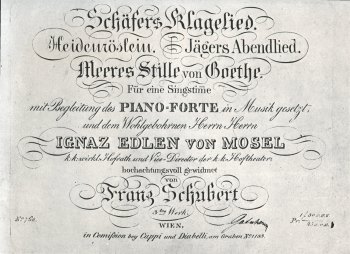 Schäfers Klagelied.
Heidenröslein. Jägers Abendlied.
Meeres Stille von Goethe.
Für eine Singstime
mit Begleitung des PIANO-FORTE in Musik gesetzt,
und dem Wohlgebohrnen Herrn Herrn
IGNAZ EDLEN VON MOSEL
k.k. wirkl. Hofrath und Vice-Director der k.k. Hoftheater.
hochachtungsvoll gewidmet
von
Franz Schubert
3tes Werk.
WIEN,
in Comission bey Cappi und Diabelli, am Graben No 1133.